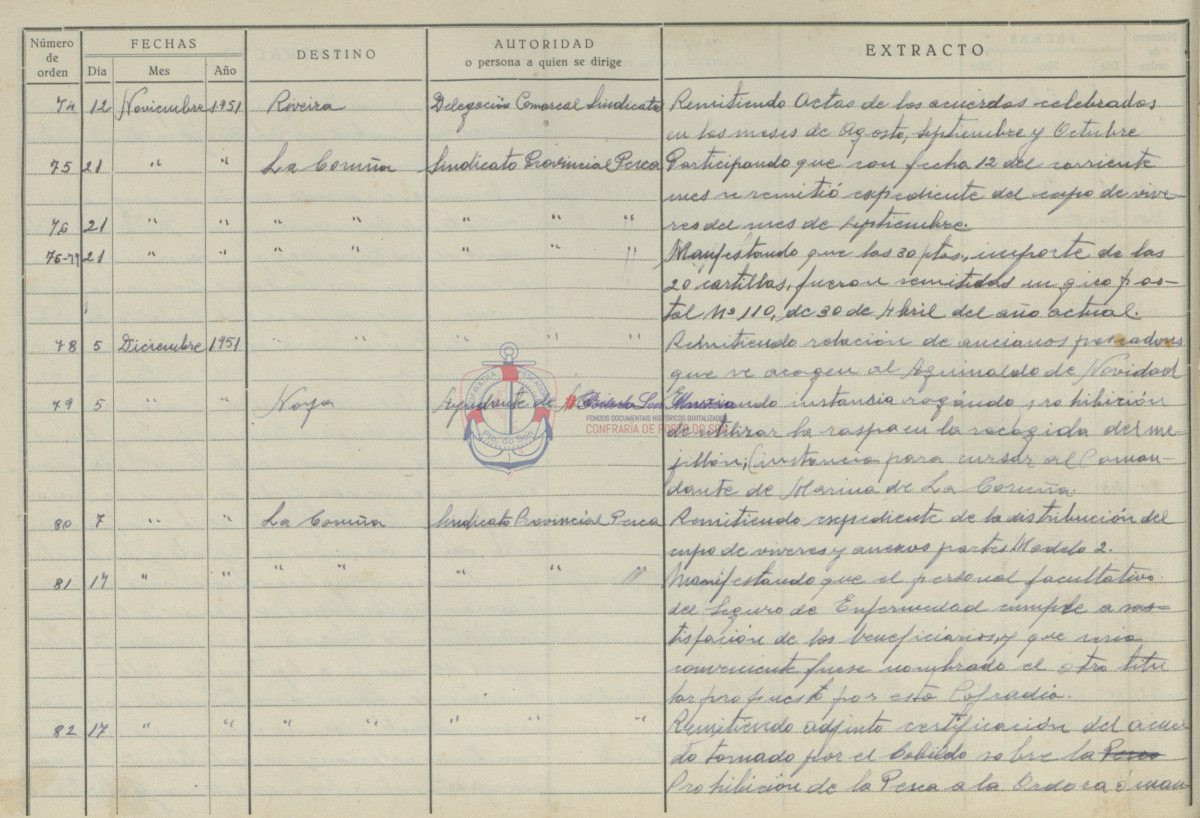 Número de orden FECHAS DESTINO AUTORIDAD EXTRACTO
Día Mes Año o persona a quien se dirige
74 12 Noviembre 1951 Riveira Delegación Comarcal Sindicatos Remitiendo Actas de los acuerdos celebrados
en los meses de Agosto, Septiembre y Octubre
75 21 " " La Coruña Sindicato Provincial Pesca Participando que con fecha 12 del corriente
mes se remitió expediente del cupo de vive-
76 21 " " " " " " " res del mes de Septiembre.
76-77 21 " " " " " " " Manifestando que las 30 ptas, importe de las
20 cartillas, fueron remitidas en giro pos-
tal Nº 110, de 30 de Abril del año actual.
78 5 Diciembre 1951 " " " " " Remitiendo relación de ancianos pescadores
que se acogen al Aguinaldo de Navidad
79 5 " " Noya Ayudante de instancia rogando prohibición
de utilizar la raspa en la recogida del me-
jillón, (instancia para cursar al Coman-
dante de Marina de La Coruña.
80 7 " " La Coruña Sindicato Provincial Pesca Remitiendo expediente de la distribución del
cupo de viveres y anexos partes Modelo 2.
81 17 " " " " " " " Manifestando que el personal facultativo
del Seguro de Enfermedad cumple a sas-
tisfación de los beneficiarios, y que seria
conveniente fuese nombrado el otro titu
lar propuesto por esta Cofradia.
82 17 " " " " " " " Remitiendo adjunto certificación del acuer
do tomado por el Cabildo sobre la Pesca
Prohibición de la Pesca a la Ardora ó man
COFRADÍA PESCADORES
Pto. do Son
FONDOS DOCUMENTAIS HISTÓRICOS DIXITALIZADOS
CONFRARÍA DE PORTO DO SON